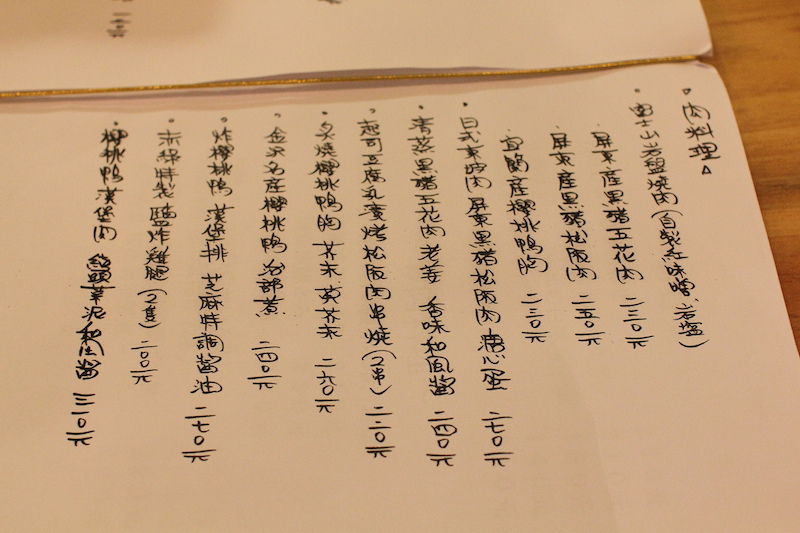 。肉料理△
。富士山岩盤燒肉(自製紅味噌、岩塩)
屏東產黑豬五花肉 二三〇元
屏東產黑豬松阪肉 二五〇元
宜蘭產櫻桃鴨胸 二三〇元
。日式東坡肉 屏東黑豬松阪肉 溏心蛋 二七〇元
。青蒸黑豬五花肉 老姜 香味和風醬 二四〇元
。起司豆腐乳漬烤松阪肉串燒(2串) 二二〇元
。炙燒櫻桃鴨胸 芥末 黃芥末 二六〇元
。金沢名産櫻桃鴨 治部煮 二四〇元
。炸櫻桃鴨 漢堡排 芝麻特調醬油 二七〇元
。赤綠特製鹽炸雞腿(2隻) 二〇〇元
。櫻桃鴨漢堡肉 和風醬